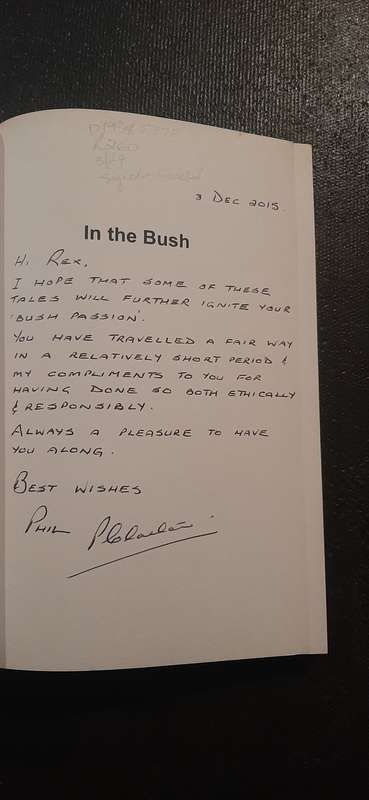 R260
3 DEC 2015.
In the Bush
HI REX,
I HOPE THAT SOME OF THESE
TALES WILL FURTHER IGNITE YOUR
'BUSH PASSION'.
YOU HAVE TRAVELLED A FAIR WAY
IN A RELATIVELY SHORT PERIOD &
MY COMPLIMENTS TO YOU FOR
HAVING DONE SO BOTH ETHICALLY
& RESPONSIBLY.
ALWAYS A PLEASURE TO HAVE
YOU ALONG.
BEST WISHES
PHIL